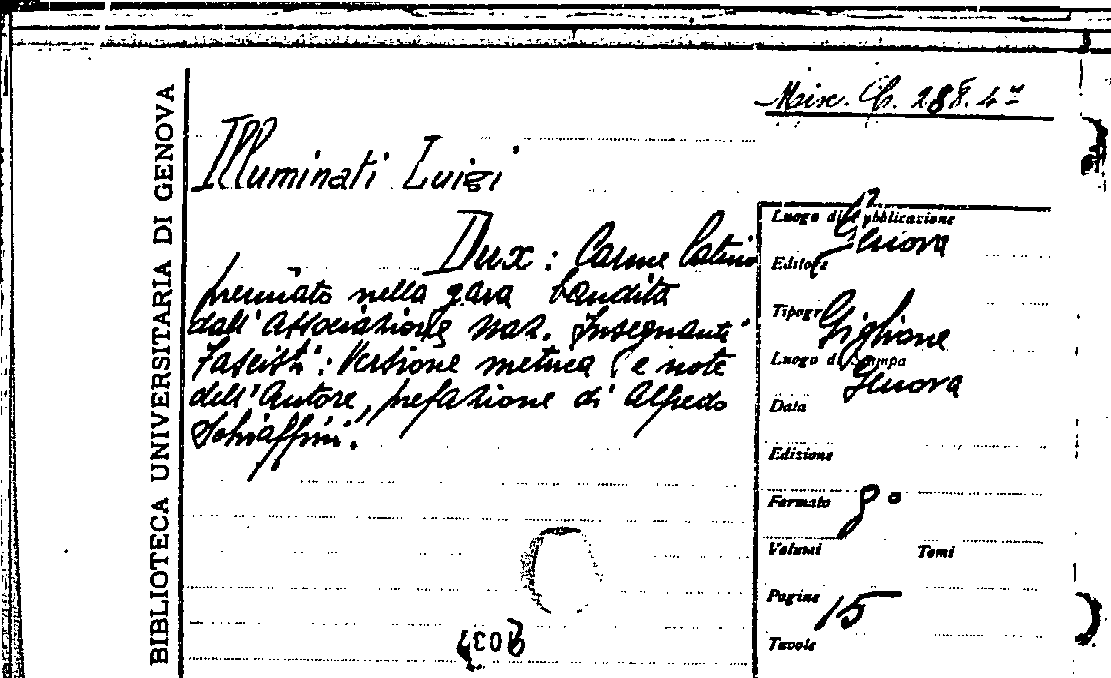 BIBLIOTECA UNIVERSITARIA DI GENOVA
Misc. C. 288.
Illuminati Luigi
Dux: Carme latino
premiato nella gara bandita
dall'Associazione Naz. Insegnanti
Fascisti: Versione metrica e note
dell'Autore, prefazione di Alfredo
Schiaffini.
Luogo di Pubblicazione
Genova
Editore
Tipogr
Giglione
Luogo di Stampa
Genova
Data
Edizione
Formato 8°
Volumi Tomi
Pagine 15
Tavole